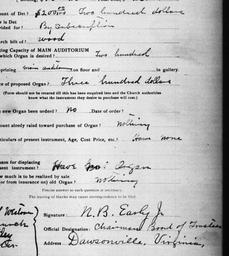 ount of Debt? $2000.00 Two hundred dollars
is Debt
vided for? By Subscription
rch built of? wood
ting Capacity of MAIN AUDITORIUM Two hundred
which Organ is desired?
mprising main auditorium on floor and in gallery.
ce of proposed Organ? Three hundred dollars
(Form should not be returned till this has been enquired into and the Church authorities
know what the instrument they desire to purchase will cost.)
new Organ been ordered? No Date of order?
ount already raised toward purchase of Organ? nothing
rticulars of present instrument, Age, Cost Price, etc.? Have none
asons for displacing
sent instrument? Have no Organ
w much is to be realized by sale
or from insurance on) old Organ? nothing
Precise answer to each question is necessary.
The leaving of blanks may cause correspondence and delay.
Signature: N. B. Early Jr
Official Designation: Chairman Board of Trustees
Address: Dawsonville, Virginia,